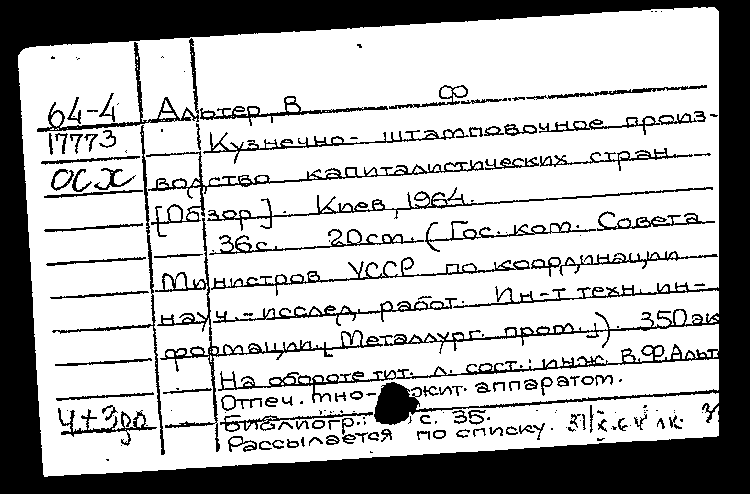 64-4 Альтер, В Ф
17773 Кузнечно-штамповочное произ-
ОСХ водство капиталистических стран.
[Обзор]. Киев, 1964.
36с. 20см. (Гос. ком. Совета
Министров УССР по координации
науч.-исслед. работ. Ин-т техн. ин-
формации. [Металлург. пром.]). 350 эк
На обороте тит. л. сост.: инж. В.Ф. Альт
Отпеч. мно- жит. аппаратом.
Библиогр.: с. 35.
Рассылается по списку.